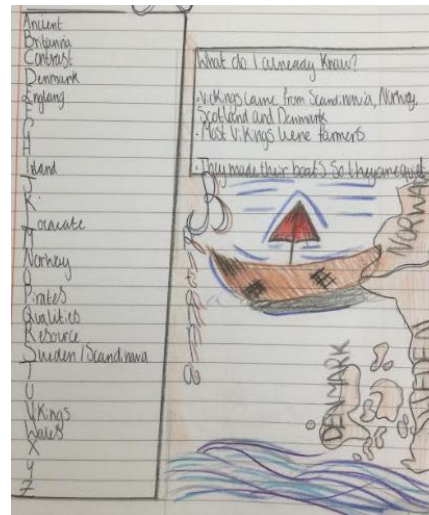 Ancient
Britannia
Contrast
Denmark
England
F
G
H
Island
J
K
L
M
Norway
O
Pirates
Qualities
Resource
Sweden / Scandinavia
T
U
Vikings
Wales
X
Y
Z
What do I already Know?
• Vickings came from Scandinavia, Norway,
Scotland and Denmark
• Most Vikings were farmers
• They made their boats So they are quiet
NORWAY
DENMARK
SWEDEN